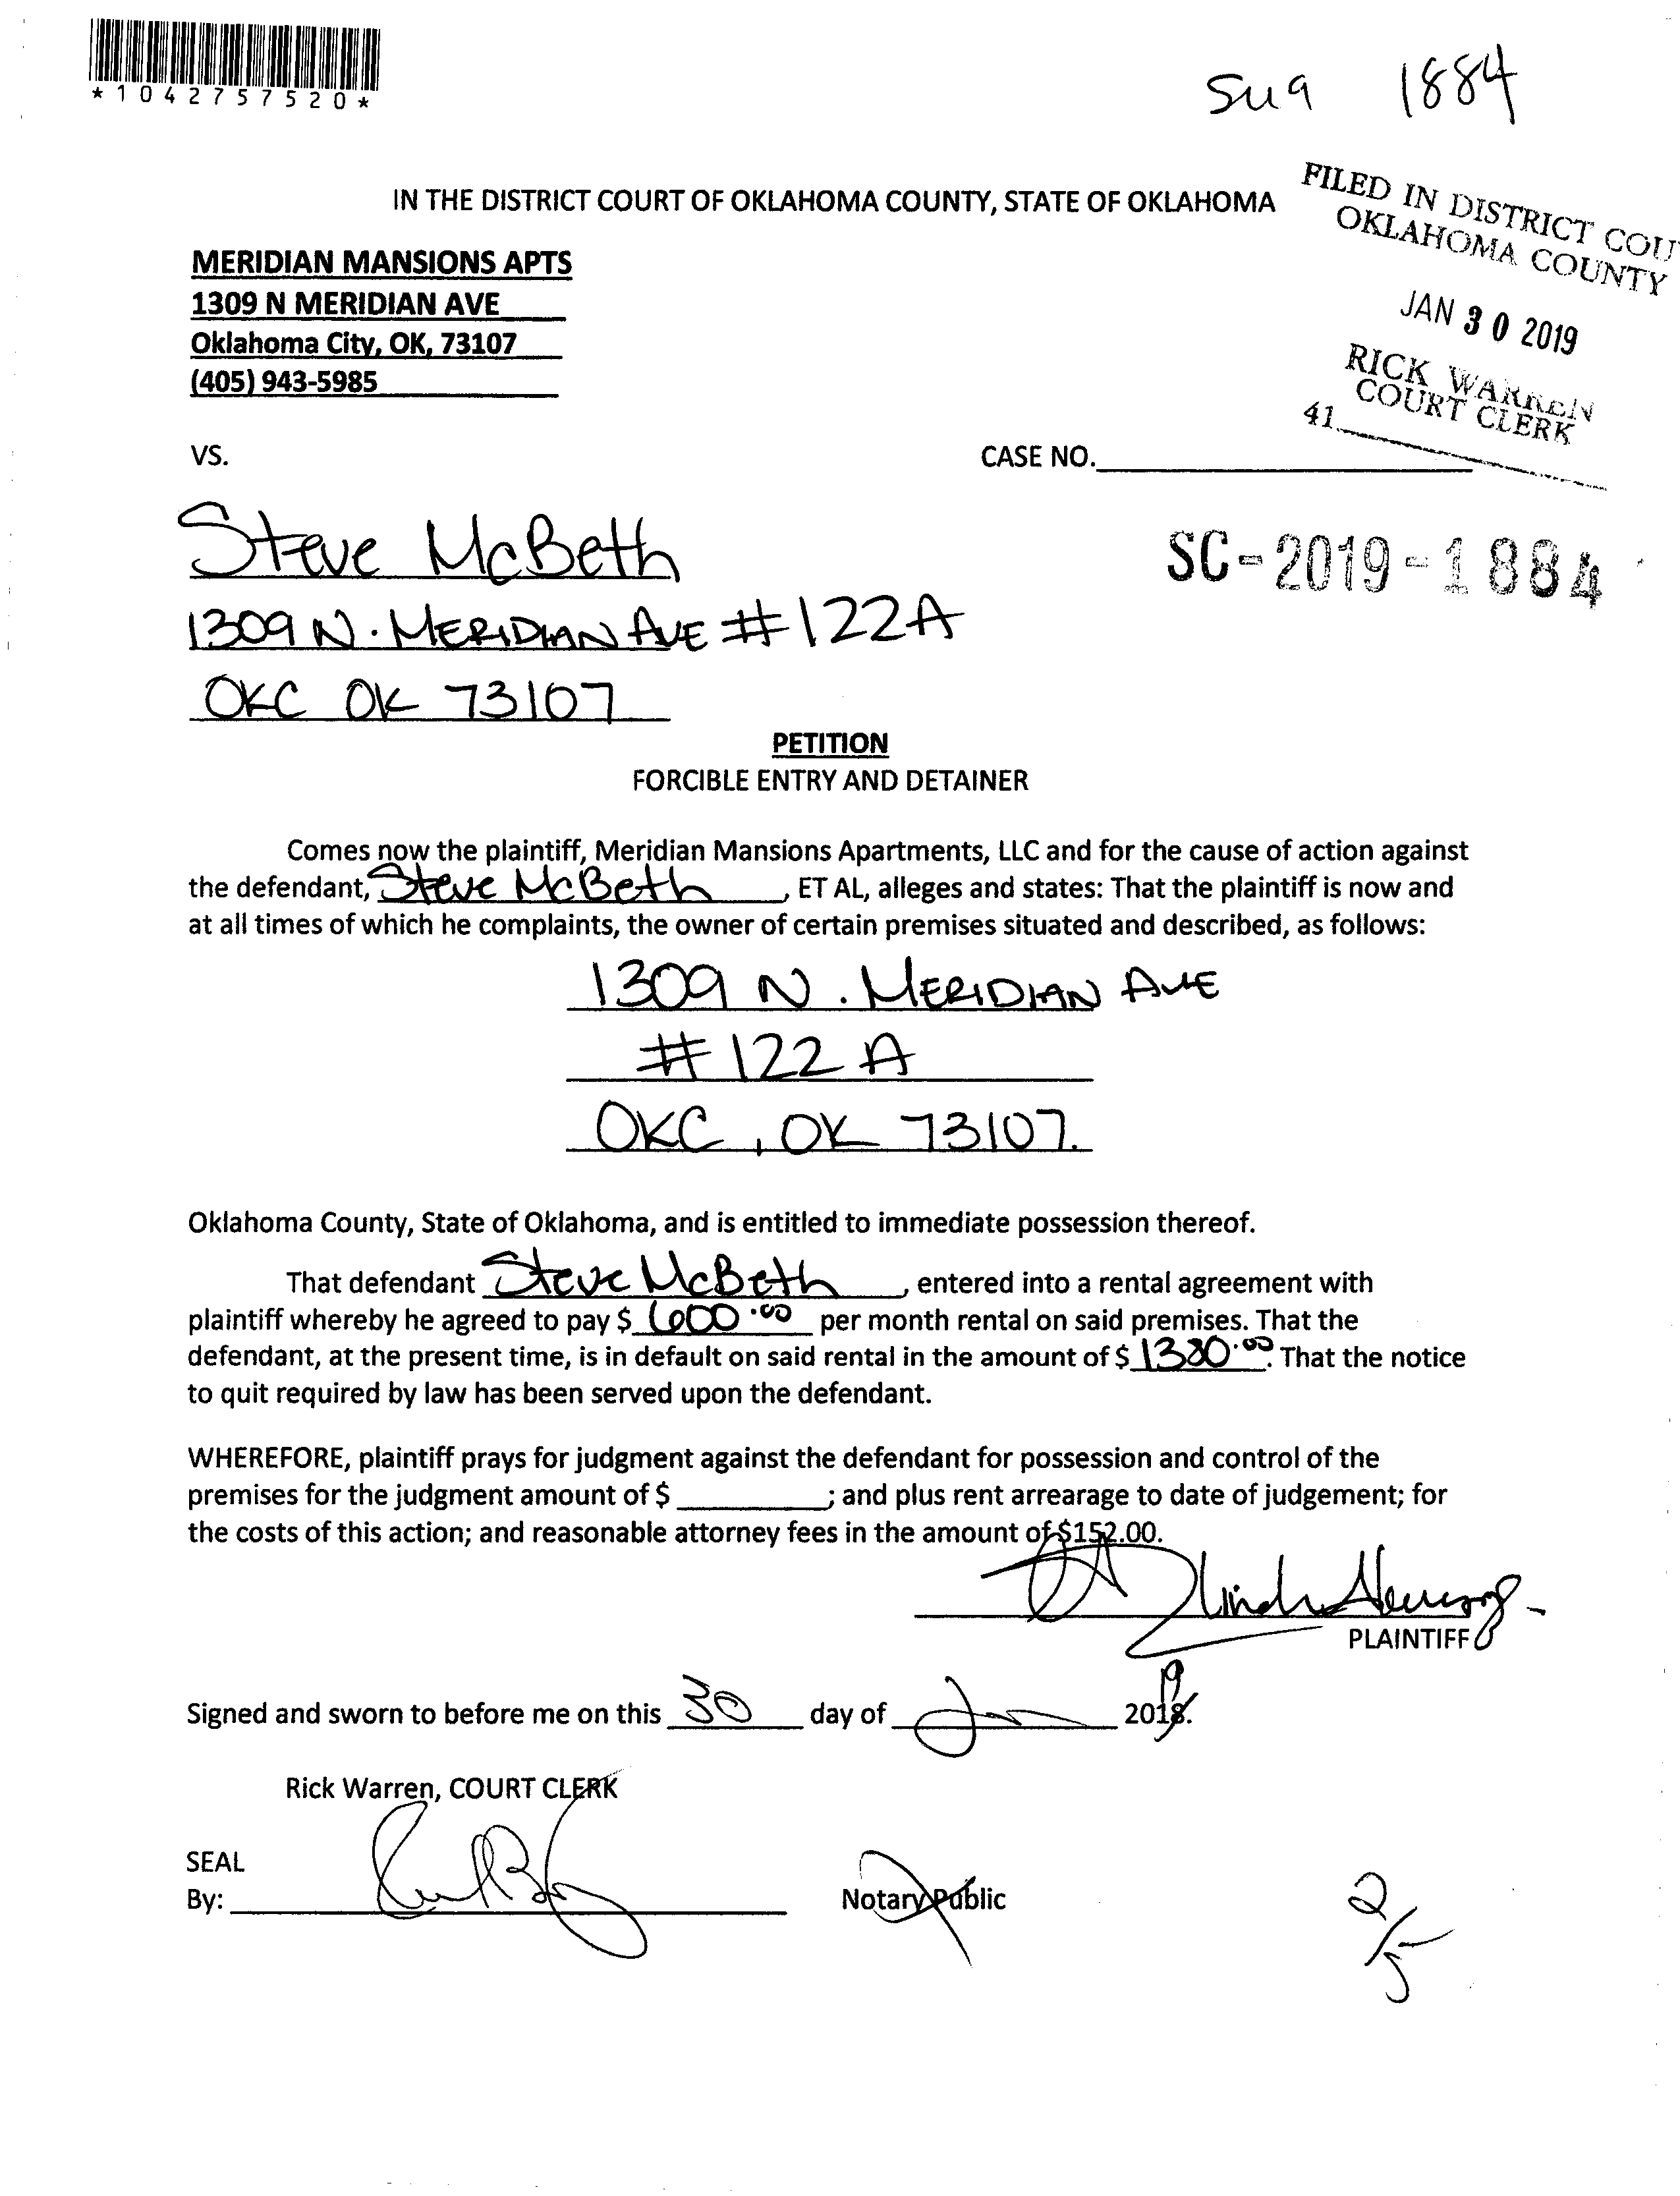 *1042757520*
1884
IN THE DISTRICT COURT OF OKLAHOMA COUNTY, STATE OF OKLAHOMA
FILED IN DISTRICT COU
OKLAHOMA COUNTY
JAN 30 2019
RICK WARREN
COURT CLERK
41
MERIDIAN MANSIONS APTS
1309 N MERIDIAN AVE
Oklahoma City, OK, 73107
(405) 943-5985
VS.
CASE NO.
Steve McBeth
SC-2019-1884
1309 N. MERIDIAN AVE #122A
OKC OK 73107
PETITION
FORCIBLE ENTRY AND DETAINER
Comes now the plaintiff, Meridian Mansions Apartments, LLC and for the cause of action against
the defendant, Steve McBeth, ET AL, alleges and states: That the plaintiff is now and
at all times of which he complaints, the owner of certain premises situated and described, as follows:
1309 N. MERIDIAN AVE
#122 A
OKC, OK 73107.
Oklahoma County, State of Oklahoma, and is entitled to immediate possession thereof.
That defendant Steve McBeth, entered into a rental agreement with
plaintiff whereby he agreed to pay $ 600.00 per month rental on said premises. That the
defendant, at the present time, is in default on said rental in the amount of $ 1380.00. That the notice
to quit required by law has been served upon the defendant.
WHEREFORE, plaintiff prays for judgment against the defendant for possession and control of the
premises for the judgment amount of $ ; and plus rent arrearage to date of judgement; for
the costs of this action; and reasonable attorney fees in the amount of $152.00.
PLAINTIFF
Signed and sworn to before me on this 30 day of Jan 2019.
Rick Warren, COURT CLERK
SEAL
By:
Notary Public
2/5